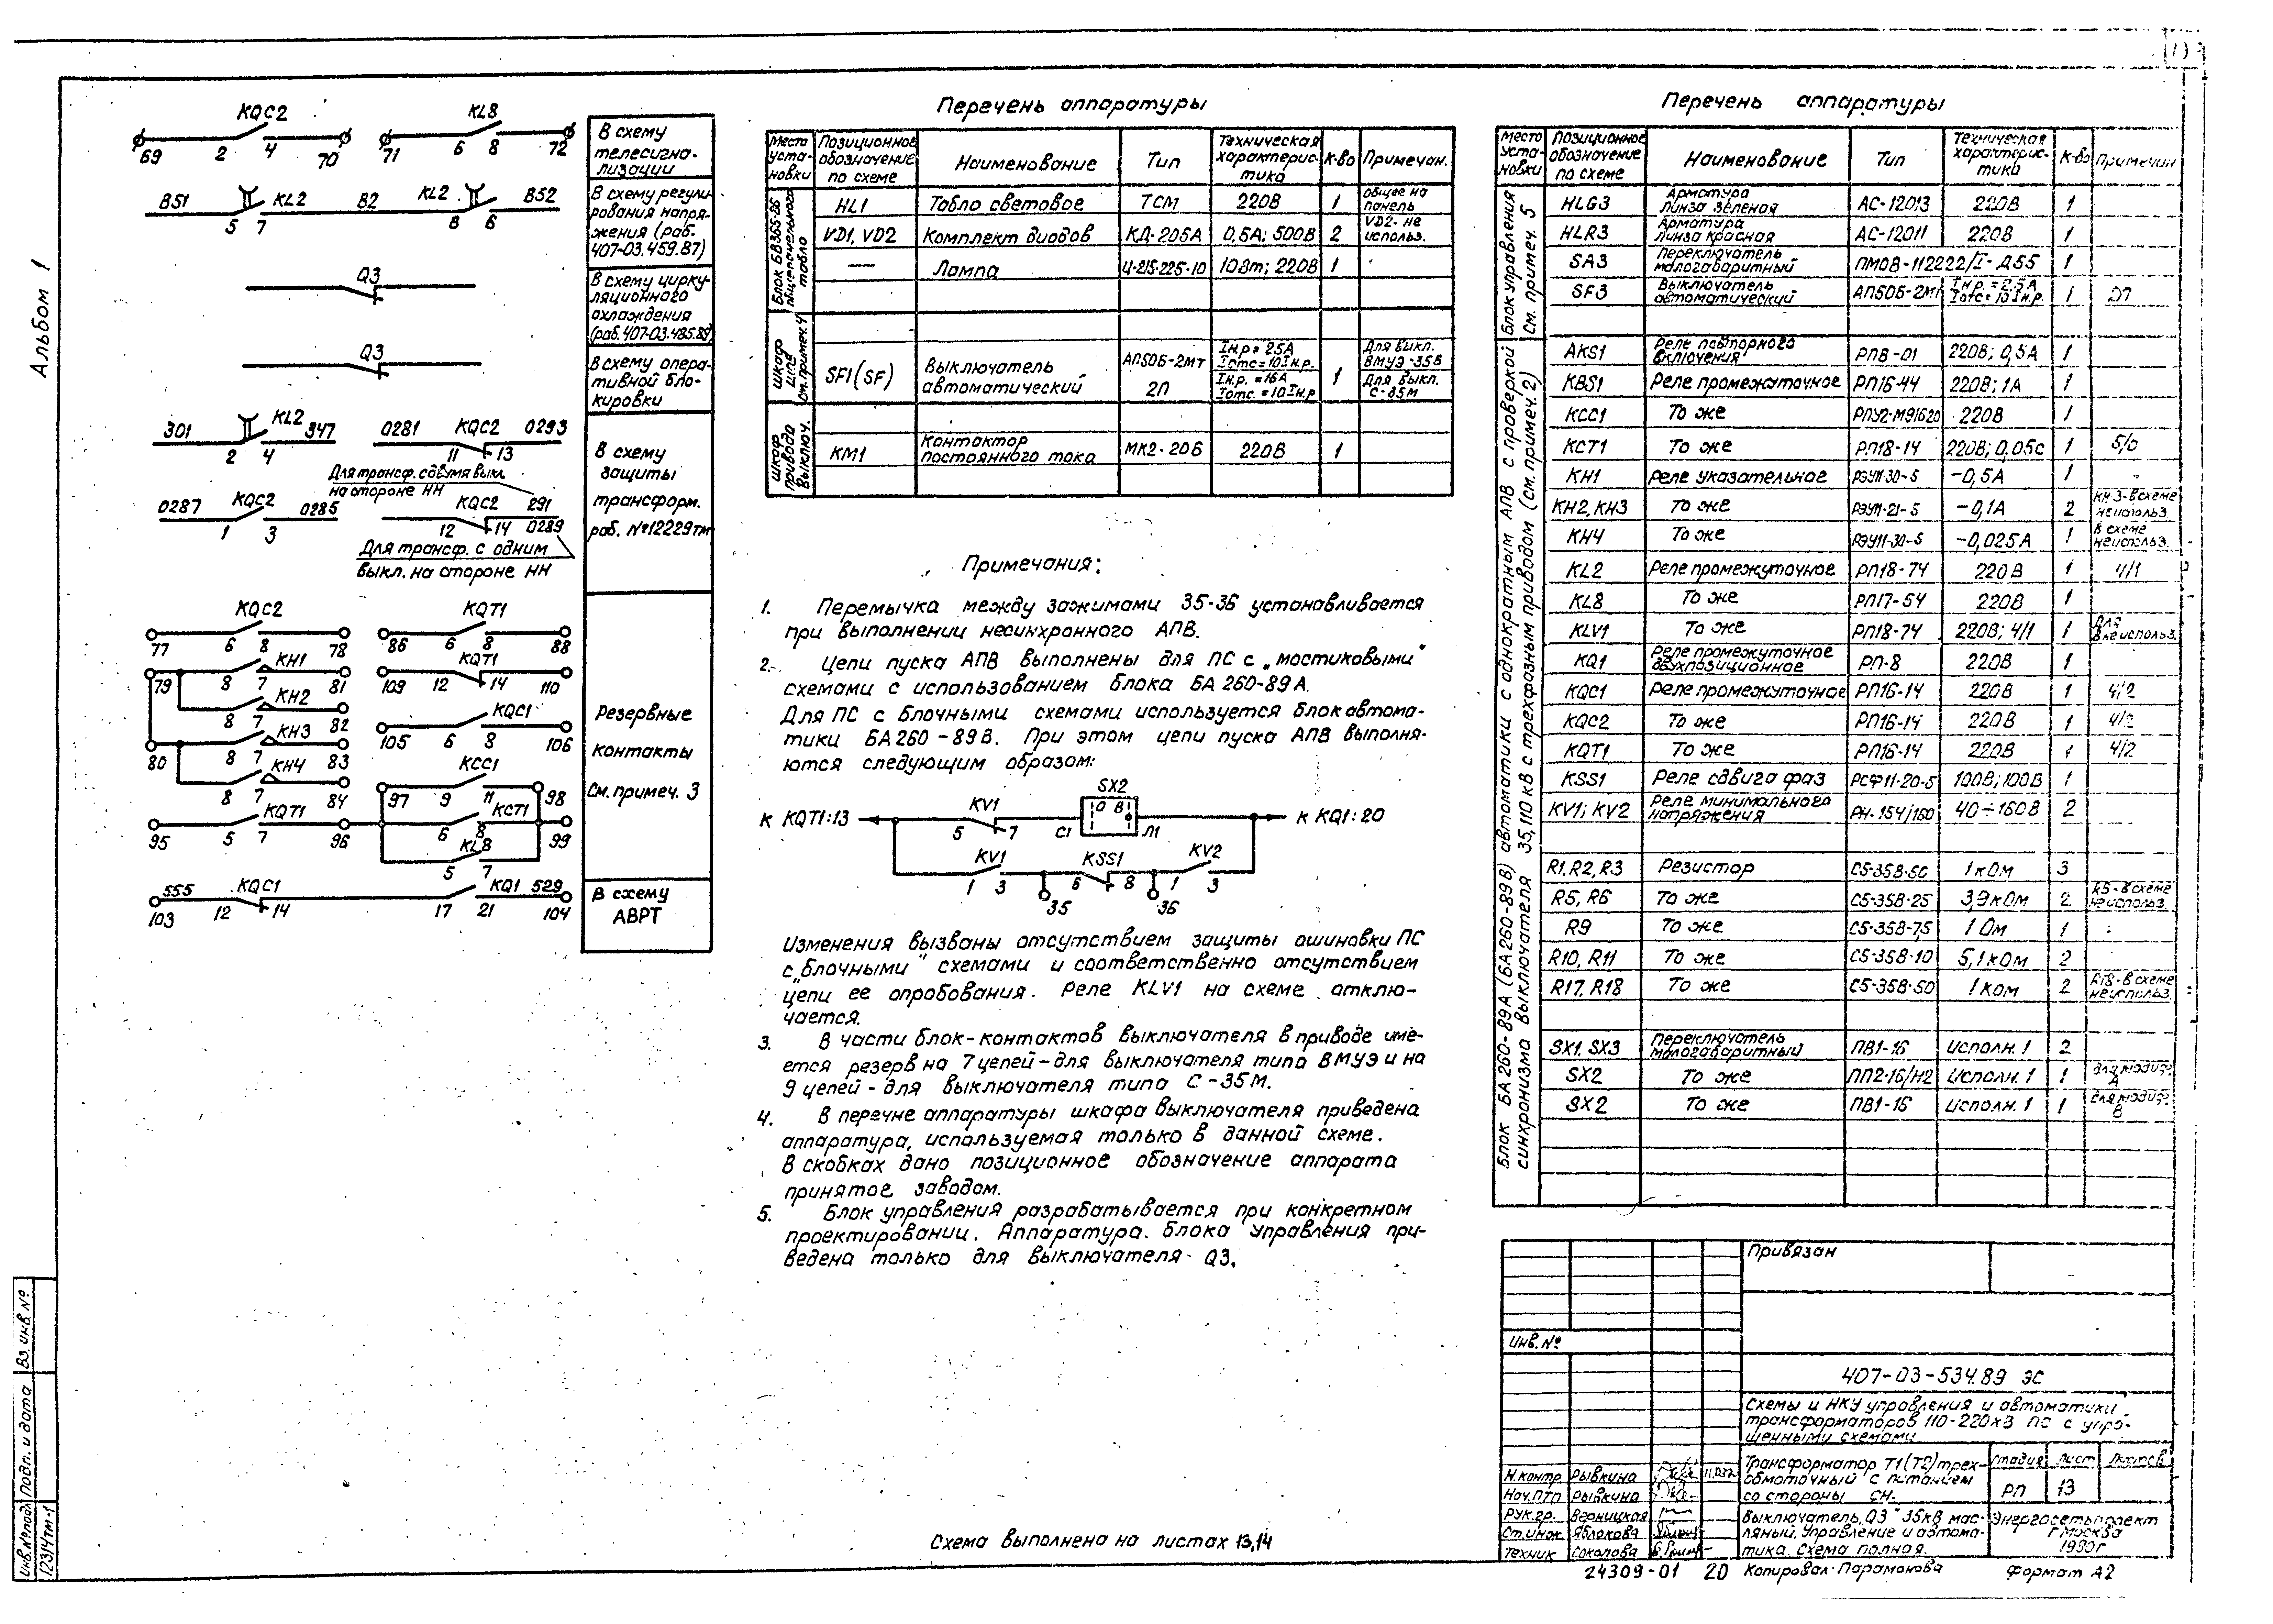 Альбом 1
KQC2
KL8
69 2 4 70 71 6 8 72
В схему
телесигна-
лизации
B51 KL2 B2 KL2 B52
5 7 8 6
В схему регули-
рования напря-
жения (раб.
407-03.459.87)
Q3
В схему цирку-
ляционного
охлаждения
(раб. 407-03.485.89)
Q3
В схему опера-
тивной бло-
кировки
301 KL2 347 0281 KQC2 0293
2 4 11 13
Для трансф. с двумя выкл.
на стороне НН
0287 KQC2 0285 KQC2 291
1 3 12 14 0289
Для трансф. с одним
выкл. на стороне НН
В схему
защиты
трансформ.
раб. №12229тм
KQC2 KQT1
77 6 8 78 86 6 8 88
KH1 KQT1
79 8 7 81 109 12 14 110
KH2
8 7 82
KH3 KQC1
80 8 7 83 105 6 8 106
KH4 KCC1
8 7 84 97 9 11 98
KQT1 KCT1
95 5 7 96 6 8 99
KL8
5 7
Резервные
контакты
См. примеч. 3
555 KQC1 KQ1 529
103 12 14 17 21 104
В схему
АВРТ
Перечень аппаратуры
Место уста- новки | Позиционное обозначение по схеме | Наименование | Тип | Техническая характерис- тика | К-во | Примечан.
Блок БВ365-86 общепанельного табло
HL1 Табло световое ТСМ 220В 1 общее на панель
VD1, VD2 Комплект диодов КД-205А 0,5А; 500В 2 VD2-не использ.
— Лампа Ц-215-225-10 10Вт; 220В 1
SF1(SF) Выключатель автоматический АП50Б-2МТ Iн.р = 25А Iотс = 10Iн.р. 1 Для выкл. ВМУЭ-35Б
2П Iн.р. = 16А Iотс. = 10Iн.р Для выкл. С-35М
шкаф привода выключ.
KM1 Контактор постоянного тока МК2-20Б 220В 1
Примечания:
1. Перемычка между зажимами 35-36 устанавливается
при выполнении несинхронного АПВ.
2. Цепи пуска АПВ выполнены для ПС с „мостиковыми"
схемами с использованием блока БА 260-89А.
Для ПС с блочными схемами используется блок автома-
тики БА260-89В. При этом цепи пуска АПВ выполня-
ются следующим образом:
SX2
К KQT1:13 KV1 О В К KQ1:20
5 7 С1 Л1
KV1 KSS1 KV2
1 3 6 8 1 3
35 36
Изменения вызваны отсутствием защиты ошиновки ПС
с „блочными" схемами и соответственно отсутствием
цепи ее опробования. Реле KLV1 на схеме отклю-
чается.
3. В части блок-контактов выключателя в приводе име-
ется резерв на 7 цепей - для выключателя типа ВМУЭ и на
9 цепей - для выключателя типа С-35М.
4. В перечне аппаратуры шкафа выключателя приведена
аппаратура, используемая только в данной схеме.
В скобках дано позиционное обозначение аппарата
принятое заводом.
5. Блок управления разрабатывается при конкретном
проектировании. Аппаратура блока управления при-
ведена только для выключателя Q3.
Схема выполнена на листах 13,14
Перечень аппаратуры
Место уста- новки | Позиционное обозначение по схеме | Наименование | Тип | Техническая характерис- тика | К-во | Примечан
Блок управления См. примеч. 5
HLG3 Арматура линза зеленая АС-12013 220В 1
HLR3 Арматура линза красная АС-12011 220В 1
SA3 Переключатель малогабаритный ПМОВ-112222/I-Д55 1
SF3 Выключатель автоматический АП50Б-2МТ Iн.р. = 2,5А Iотс = 10Iн.р. 1
Блок БА 260-89А (БА260-89В) автоматики с однократным АПВ с проверкой
синхронизма выключателя 35,110 кВ с трехфазным приводом (см. примеч. 2)
AKS1 Реле повторного включения РПВ-01 220В; 0,5А 1
KBS1 Реле промежуточное РП16-44 220В; 1А 1
KCC1 То же РПУ2-М91620 220В 1
KCT1 То же РП18-14 220В; 0,05с 1 5/0
KH1 Реле указательное РЭУ11-30-5 -0,5А 1
KH2, KH3 То же РЭУ11-21-5 -0,1А 2 KH-3-в схеме неиспольз.
KH4 То же РЭУ11-30-5 -0,025А 1 В схеме неиспольз.
KL2 Реле промежуточное РП18-74 220В 1 4/1
KL8 То же РП17-54 220В 1
KLV1 То же РП18-74 220В; 4/1 1
KQ1 Реле промежуточное двухпозиционное РП-8 220В 1
KQC1 Реле промежуточное РП16-14 220В 1 4/2
KQC2 То же РП16-14 220В 1 4/2
KQT1 То же РП16-14 220В 1 4/2
KSS1 Реле сдвига фаз РСФ11-20-5 100В; 100В 1
KV1; KV2 Реле минимального напряжения РН-154/160 40÷160В 2
R1, R2, R3 Резистор С5-35В-50 1 кОм 3
R5, R6 То же С5-35В-25 3,9 кОм 2 R5-в схеме неиспольз.
R9 То же С5-35В-7,5 1 Ом 1
R10, R11 То же С5-35В-10 5,1 кОм 2
R17, R18 То же С5-35В-50 1 ком 2 R18-в схеме неиспольз.
SX1, SX3 Переключатель малогабаритный ПВ1-16 Исполн. 1 2
SX2 То же ПП2-16/Н2 Исполн. 1 1 для модиф. А
SX2 То же ПВ1-16 Исполн. 1 1 для модиф. В
Привязан
Инв. №
407-03-534.89 ЭС
Схемы и НКУ управления и автоматики
трансформаторов 110-220кВ ПС с упро-
щенными схемами
Н.контр. Рывкина 
Нач.ПТП Рывкина
Рук.гр. Верницкая
Ст.инж. Яблокова
Техник Соколова
Трансформатор Т1(Т2) трех-
обмоточный с питанием
со стороны СН.
Стадия Лист Листов
РП 13
Выключатель Q3 35кВ мас-
ляный. Управление и автома-
тика. Схема полная.
Энергосетьпроект
г Москва
1990г
24309-01 20 Копировал Парамонова Формат А2
Вз. инв №
Подп. и дата
Инв.№подл
12314тм-1